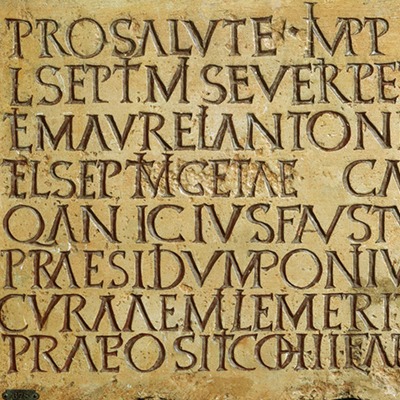 PROSALVTE IMPP
LSEPTIMI SEVERI PE
EMAVRELANTONI
ELSEPTIMIGETAE CA
QANICIVSFAVSTV
PRAESIDIVMPONIV
CVRAAEMILEMERI
PRAEPOSITCOHIII